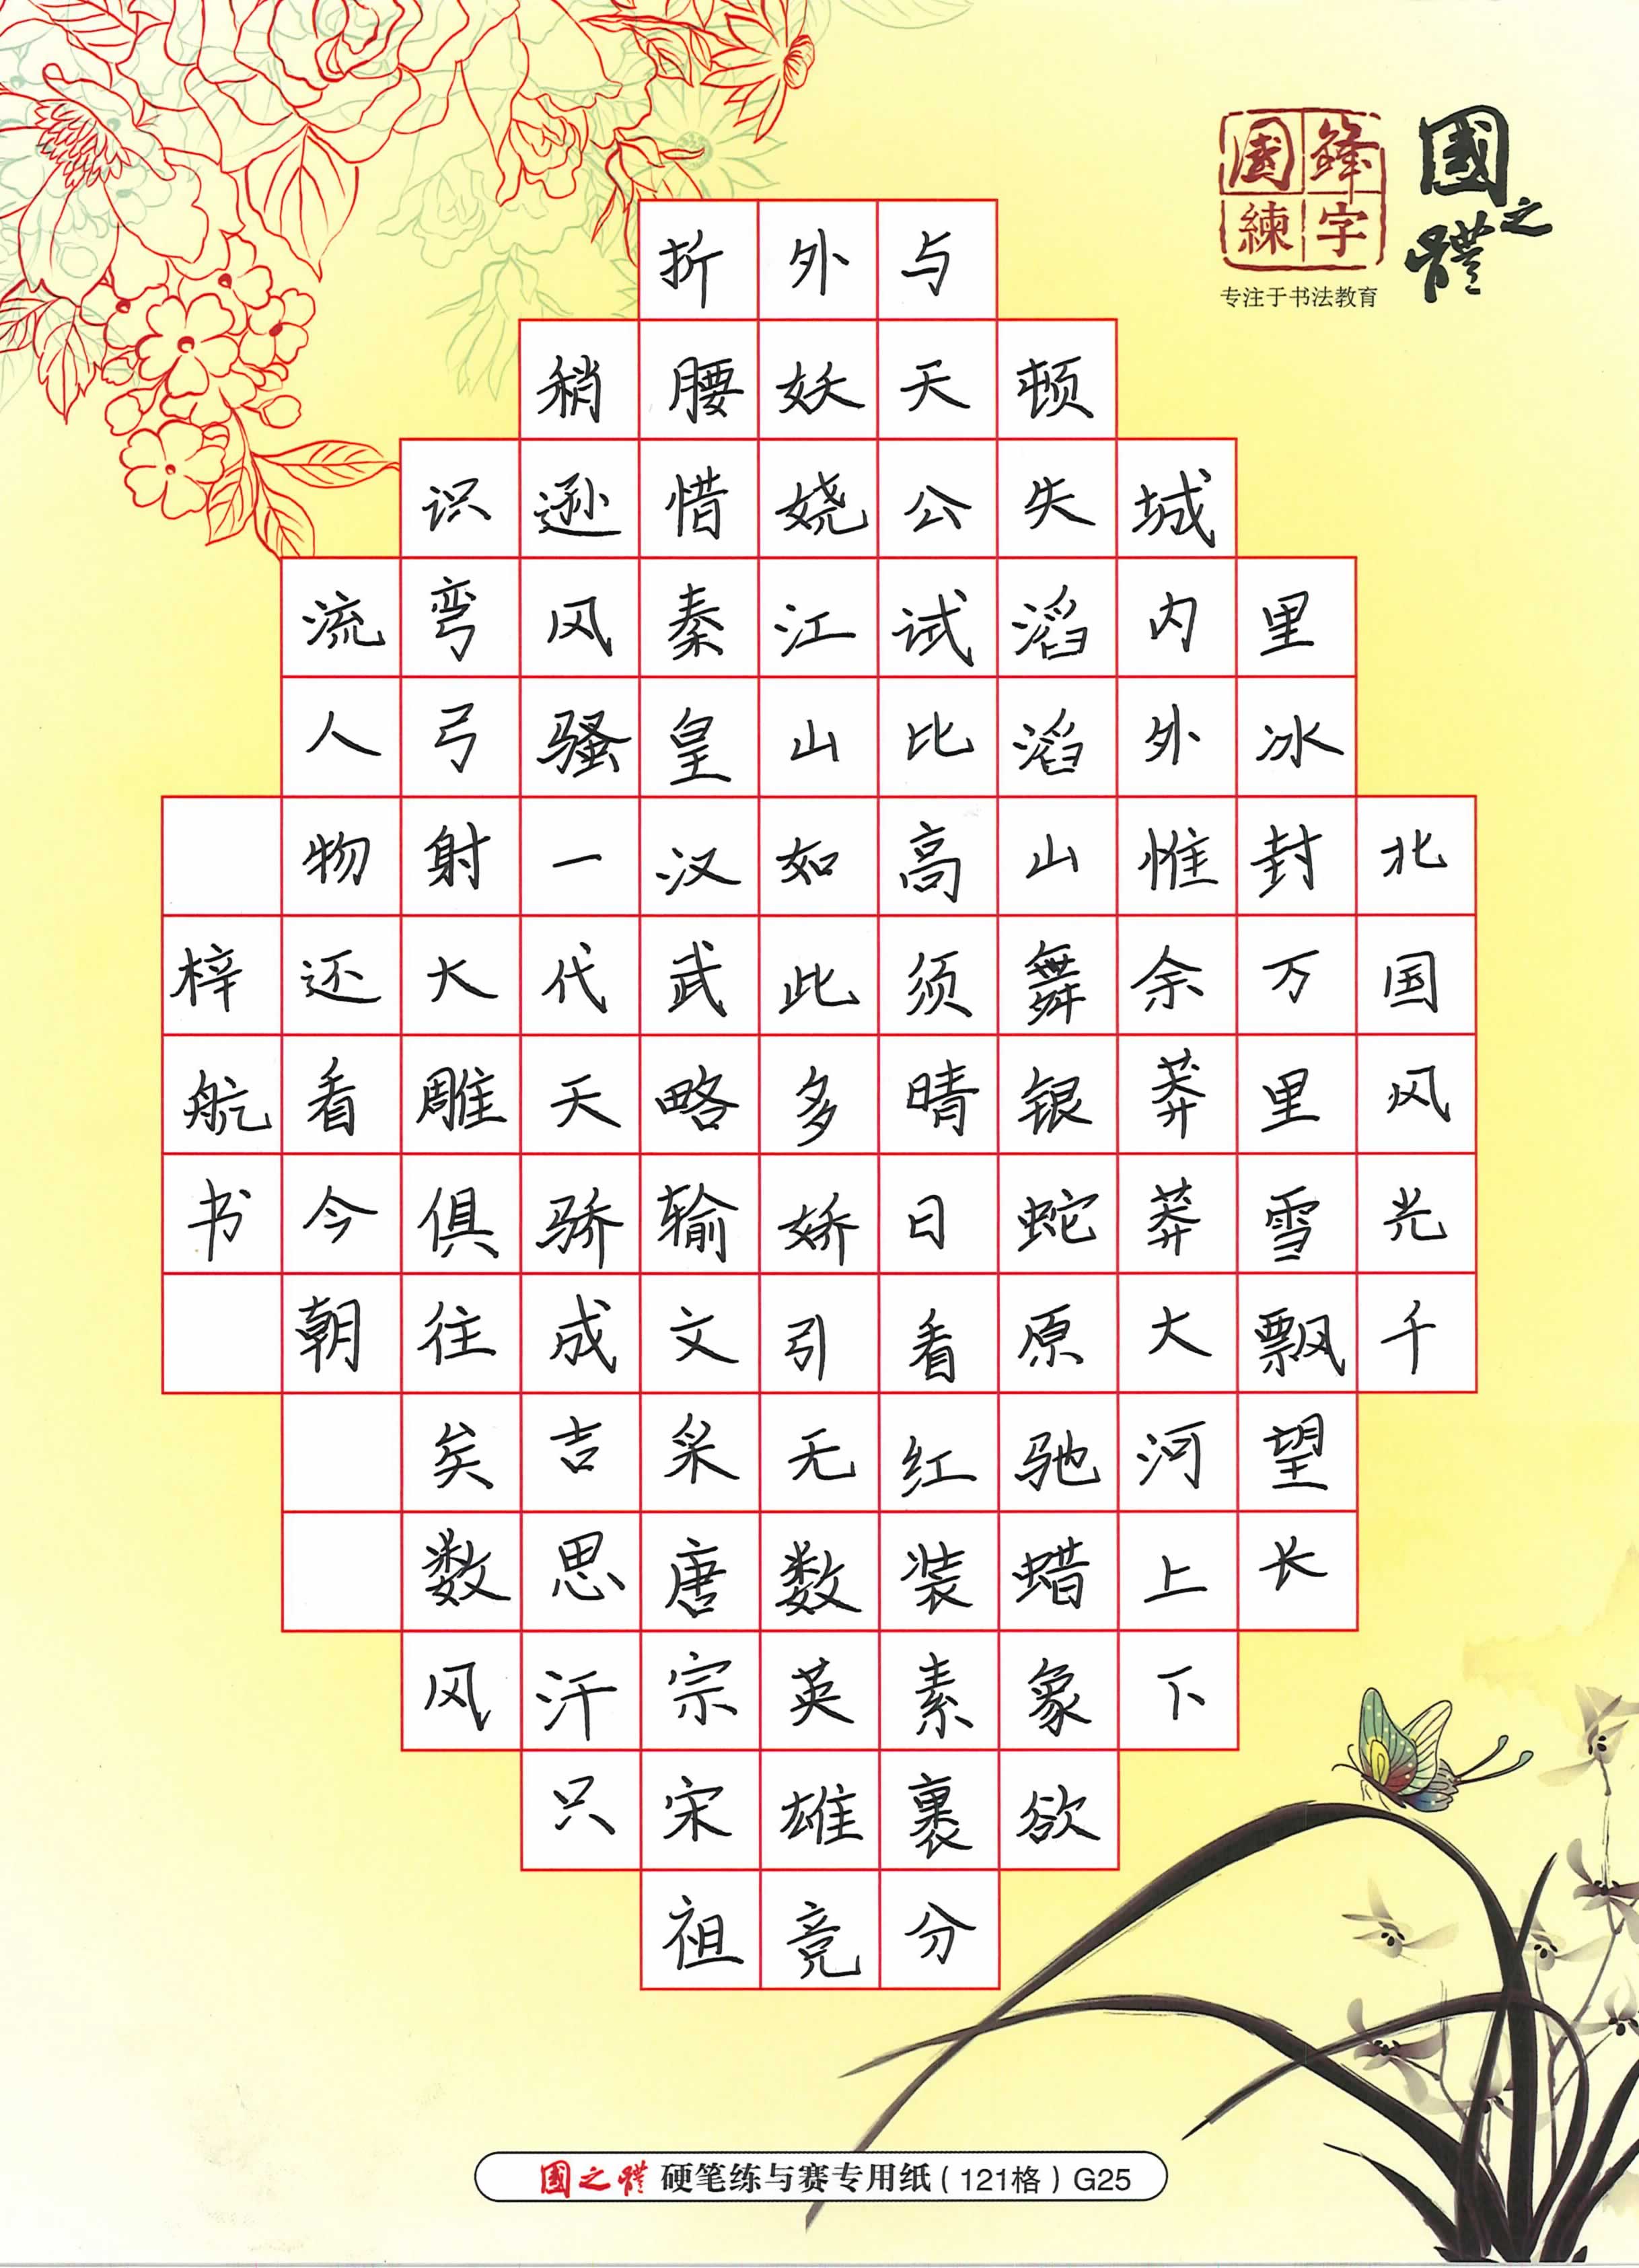 國鋒練字
國之體
专注于书法教育
北国风光千
里冰封万里雪飘望长
城内外惟余莽莽大河上下
顿失滔滔山舞银蛇原驰蜡象欲
与天公试比高须晴日看红装素裹分
外妖娆江山如此多娇引无数英雄竞
折腰惜秦皇汉武略输文采唐宗宋祖
稍逊风骚一代天骄成吉思汗只
识弯弓射大雕俱往矣数风
流人物还看今朝
梓航书
國之體 硬笔练与赛专用纸(121格)G25